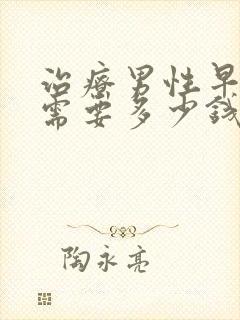 治療男性早
需要多少錢
陶永亮